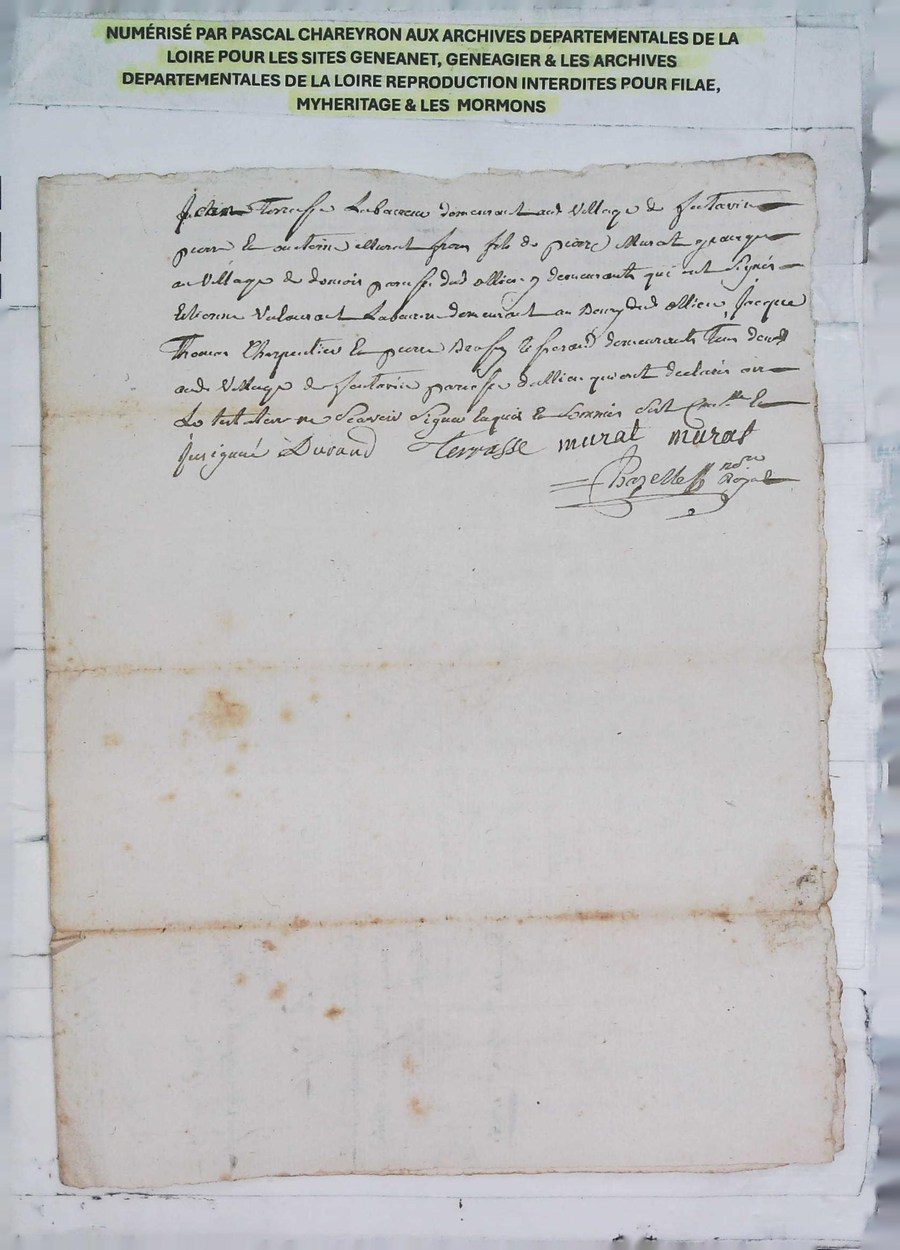 NUMÉRISÉ PAR PASCAL CHAREYRON AUX ARCHIVES DEPARTEMENTALES DE LA
LOIRE POUR LES SITES GENEANET, GENEAGIER & LES ARCHIVES
DEPARTEMENTALES DE LA LOIRE REPRODUCTION INTERDITES POUR FILAE,
MYHERITAGE & LES MORMONS
Terrasse Laboureur demeurant aud Village de
pierre & antoine Murat freres fils de pierre Murat granger
au Village de parsse dud ollieu y demeurants qui ont signés
Etienne Laboureur demeurant au Bourg dud ollieu, Jacque
Thomas Charpentier & pierre demeurants Tous deux
aud Village de paroisse dollieu qui ont declarés ainsi
Le testateur ne Scavoir Signer Enquis & Sommés &
Durand Terrasse murat murat
Chazelles nore Royal